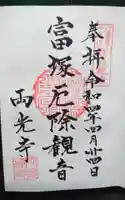 奉拝 令和四年四月廿四日
富塚厄除観音
西光寺